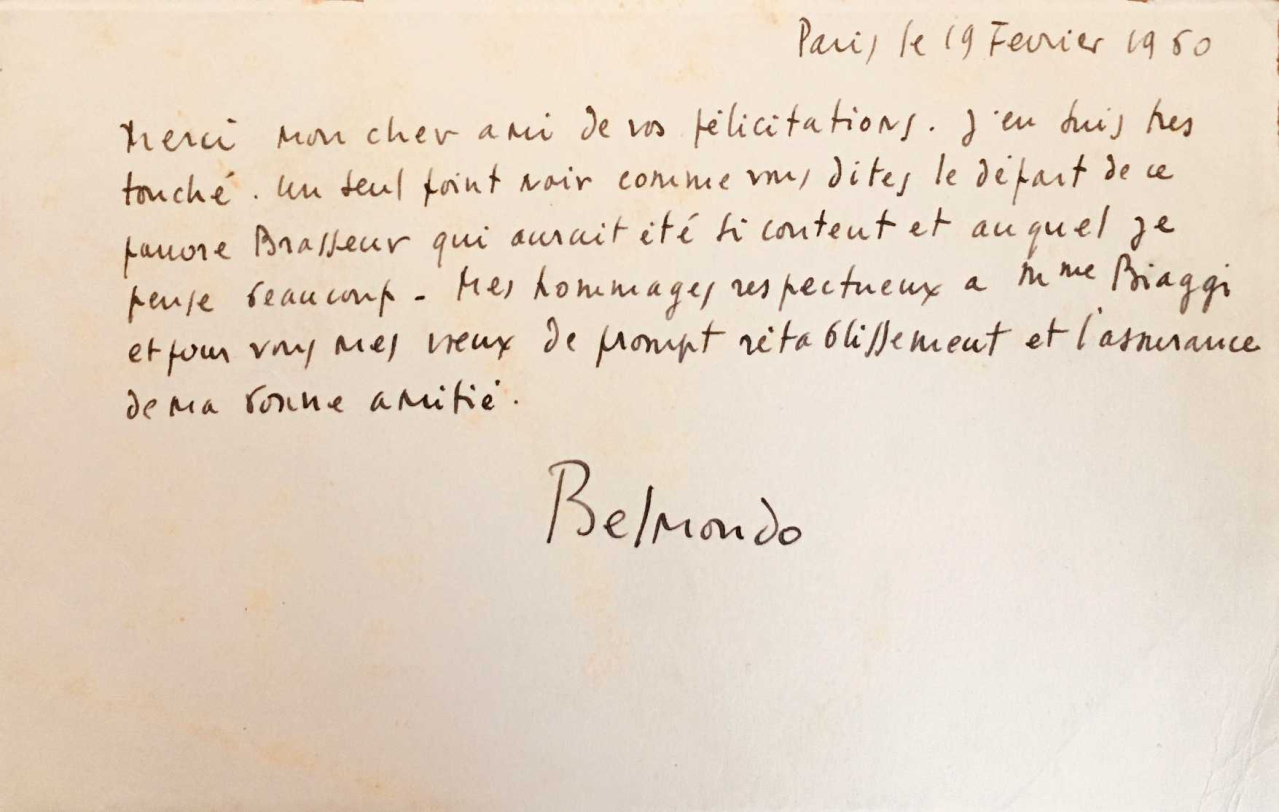 Paris le 19 Fevrier 1960
Merci mon cher ami de vos félicitations. J'en suis tres
touché. Un seul point noir comme vous dites le départ de ce
pauvre Brasseur qui aurait été si content et auquel je
pense beaucoup - Mes hommages respectueux a Mme Biaggi
et pour vous mes vœux de prompt rétablissement et l'assurance
de ma bonne amitié.
Belmondo